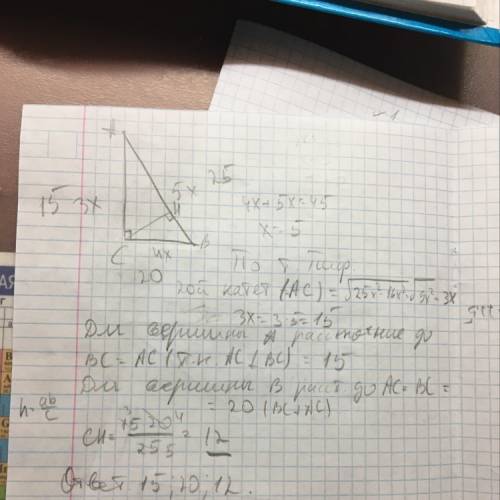 A
15 3x
5x 25
H
C
4x
B
20
4x+5x=45
x=5
По т. Пиф
2ой катет (AC) = √25x²-16x² = √9x² = 3x
3x=3·5=15
Для вершины A расстояние до
BC = AC (т.к. AC⊥BC) = 15
Для вершины B расст. до AC = BC =
= 20 (BC⊥AC)
h=ab/c
CH= 15·20/25 = 12
Ответ 15; 20; 12.